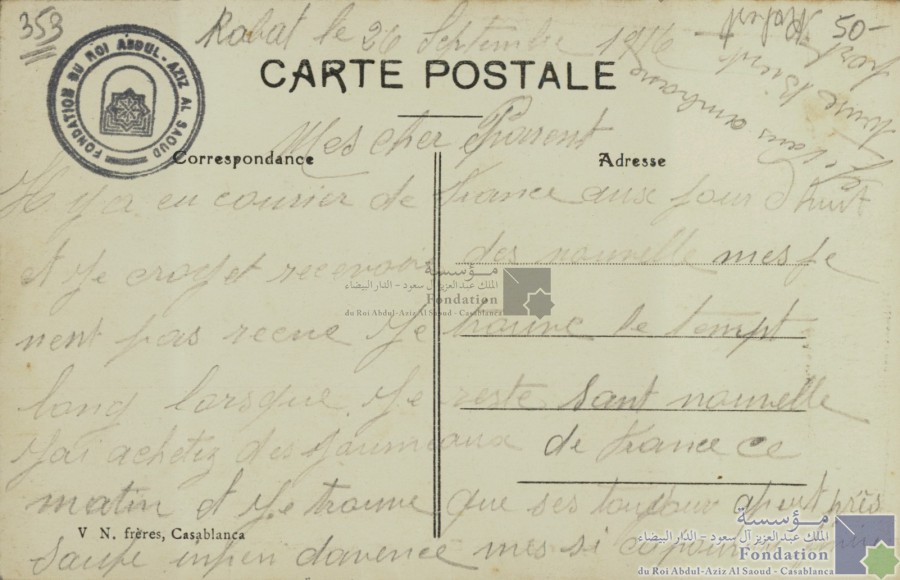 353
Rabat le 26 Septembre 1916
50-
FONDATION DU ROI ABDUL-AZIZ AL SAOUD
CARTE POSTALE
Mes cher Parent
Correspondance
Adresse
Il y a eu courier de France aux jour d'huit
et Je croyet recevoir des nouvelle mes Je
مؤسسة
الملك عبد العزيز آل سعود - الدار البيضاء
Fondation
du Roi Abdul-Aziz Al Saoud - Casablanca
nent pas recue Je trouve le tempt
long lorsque Je reste sant nouvelle
de France ce
J'ai achetez des Journeaux
matin et Je trouve que ses toujour apeut près
V N. frères, Casablanca
saufe unpeu davence mes si
مؤسسة
الملك عبد العزيز آل سعود - الدار البيضاء
Fondation
du Roi Abdul-Aziz Al Saoud - Casablanca
vous embrasse
Robert